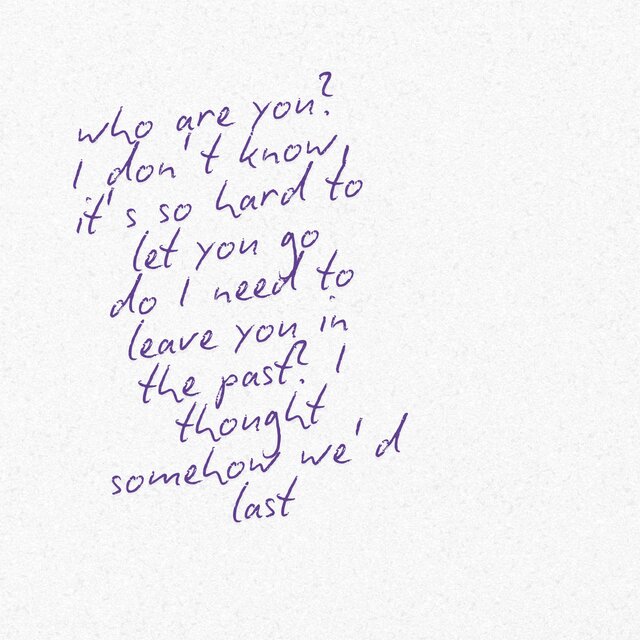 who are you?
I don't know,
it's so hard to
let you go
do I need to
leave you in
the past? I
thought
somehow we'd
last